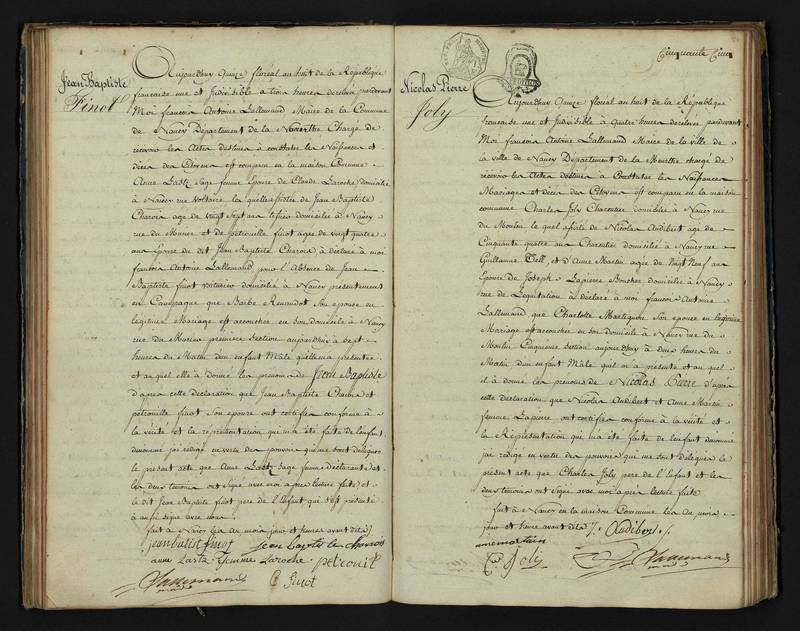 Jean Baptiste
Finot
Aujourd'huy Quinze floréal an huit de la République
française une et Indivisible à trois heures derelevée pardevant
Moi françois Antoine Lallemand Maire de la Commune
de Nancy Département de la Meurthe Chargé de
recevoir les Actes destinés à constater les Naissances et
décès des Citoyens est comparu en la maison Commune
Anne Lartz Sage femme Epouse de Claude Laroche domiciliée
à Nancy rue Voltaire la quelle assistée de Jean Baptiste
Charois agé de vingt Sept ans domicilié à Nancy
rue du Murier et de petronille finot agée de vingt quatre
ans Epouse du dit Jean Baptiste Charois, à déclaré à moi
françois Antoine Lallemand, pour l'Absence de Jean
Baptiste finot voiturier domicilié à Nancy présentement
en Campagne que Barbe Renaudot Son epouse en
legitime Mariage est accouchée en son domicile à Nancy
rue du Murier premiere Section aujourd'huy à sept
heures du Matin d'un enfant Mâle quelle m'a présenté
et auquel elle à donné les prenoms de Jean Baptiste
d'après cette déclaration que Jean Baptiste Charois et
pétronille finot Son epouse ont certifiés conforme à
la vérité et la représentation qui m'a été faite de l'enfant
dénommé jai redigé en vertu des pouvoirs qui me sont délégués
le présent acte que Anne Lartz Sage femme déclarante et
les deux temoins ont Signé avec moi après lecture faite et
le dit Jean Baptiste finot pere de l'Enfant qui s'est présenté
à aussi signé avec nous
fait à Nancy les an mois jour et heures avant dits
jean batist finot Jean Baptis le charrois
anne Lartz femme Laroche petronil
Lallemand finot
maire
Cinquante Cinq
Nicolas Pierre
Joly
Aujourd'huy Quinze floréal an huit de la République
française une et Indivisible à quatre heures derelevée, pardevant
Moi françois Antoine Lallemand Maire de la ville de
la ville de Nancy Département de la Meurthe chargé de
recevoir les Actes destinés à Constater les Naissances
Mariages et décès des Citoyens est comparu en la maison
commune Charles Joly Charentier domicilié à Nancy rue
du Moulin le quel assisté de Nicolas Audibert agé de
Cinquante quatre ans Charentier domicilié à Nancy rue
Guillaume Tell, et d'Anne Martin agée de Vingt Neuf ans
Epouse de Joseph Lapierre Boucher domicilié à Nancy
rue de L'equitation à déclaré à moi françois Antoine
Lallemand, que Charlotte Martignon Son epouse en legitime
Mariage est accouchée en son domicile à Nancy rue du
Moulin Cinquieme Section aujourd'huy à deux heures du
Matin d'un enfant Mâle quil m'a présenté et au quel
il à donné les prenoms de Nicolas Pierre d'après
cette déclaration que Nicolas Audibert et Anne Martin
femme Lapierre ont certifiés conforme à la vérité et
la Représentation qui m'a été faite de l'enfant dénommé
jai redigé en vertu des pouvoirs qui me sont délégués le
présent acte que Charles Joly pere de l'Enfant et les
deux temoins ont Signé avec moi après lecture faite
fait à Nancy en la maison Commune les an mois
jour et heure avant dits Audibert
anne martin
Joly Lallemand
maire